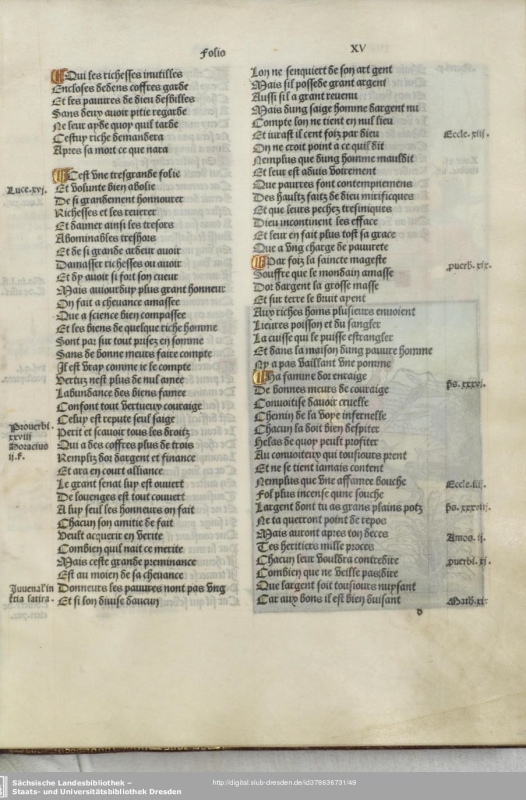 Folio XV
Qui les richesses inutilles
Encloses dedens coffres garde
Et les pauures de dieu desbilles
Sans deux auoir pitie regarde
Ne leur ayde quoy quil tarde
Cestuy riche demandera
Apres sa mort ce que nara
Cest vne tresgrande folie
Luce.xvj.
Et volunte bien abolie
De si grandement honnourer
Richesses et les reuerer
Et daymer ainsi les tresors
Abominables treshors
Et de si grande ardeur auoir
Damasser richesses ou auoir
Et dy auoir si fort son cueur
Mais auiourduy plus grant honneur
On fait a cheuance amassee
Que a science bien compassee
Et les biens de quelque riche homme
Sont par sur tout prisez en somme
Sans de bonne meurs faire compte
Il est vray comme ie le compte
Vertuz nest plus de nul amee
Labundance des biens famee
Confont tout vertueux couraige
Celuy est repute seul saige
Prouerbl.
xxviii
Perit et scauoir tous les droitz
Oracius
ij.f.
Qui a des coffres plus de trois
Remplis dor dargent et finance
Et ara en court alliance
Le grant senat luy est ouuert
De louenges est tout couuert
A luy seul les honneurs on fait
Chacun son amitie de fait
Veult acquerir en verite
Combien quil nait ce merite
Mais ceste grande preminance
Est au moien de sa cheuance
Iuuenal in
tercia satira.
Donneurs les pauures nont pas vng
Et si lon diuise daucun
Lon ne senquiert de son art gent
Mais sil possede grant argent
Aussi sil a grant reuenu
Mais dung saige homme dargent nu
Compte lon ne tient en nul lieu
Et iurast il cent foiz par dieu
Eccle.xiij.
On ne croit point a ce quil dit
Nemplus que dung homme mauldit
Et leur est aduis voirement
Que pauures font contempnemens
Des haultz faitz de dieu mirifiques
Et que leurs pechez tresiniques
Dieu incontinent les efface
Et leur en fait plus tost sa grace
Que a vng charge de pauurete
Par foiz la saincte mageste
puerb.xix.
Souffre que le mondain amasse
Dor dargent la grosse masse
Et sur terre le bruit ayent
Aux riches homs plusieurs enuoient
Lieures poisson et du sangler
La cuisse qui le puisse estrangler
Et dans la maison dung pauure homme
Ny a pas vaillant vne pomme
Ha famine dor enraige
ps.xxxvi.
De bonnes meurs de couraige
Conuoitise dauoir cruelle
Chemin de la voye infernelle
Chacun la doit bien despiter
Helas de quoy peult profiter
Au conuoiteux qui tousiours prent
Et ne se tient iamais content
Nemplus que vne affamee bouche
Eccle.iiij.
Fol plus incense qune souche
Largent dont tu as grans plains potz
ps.xxxviij.
Ne ta querront point de repos
Mais auront apres ton deces
Amos.ij.
Tes heritiers mille proces
Chacun leur vouldra contredire
puerbl.xj.
Combien que ne veille pas dire
Que largent soit tousiours nuysant
Car aux bons il est bien duisant
Math.xix
Sächsische Landesbibliothek –
Staats- und Universitätsbibliothek Dresden
http://digital.slub-dresden.de/id378636731/49